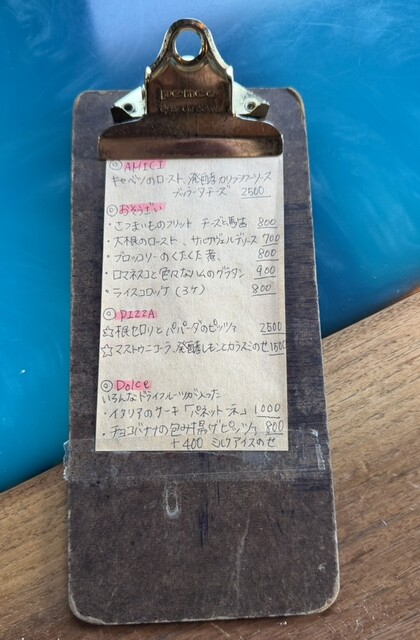 ◎AMICI
キャベツのロースト、発酵カリフラワーソース
ブッラータチーズ 2500
◎おそうざい
・さつまいものフリット チーズと馬告 800
・大根のロースト、サルサヴェルデソース 700
・ブロッコリーのくたくた煮、 800
・ロマネスコと色々なハムのグラタン 900
・ライスコロッケ (3ケ) 800
◎PIZZA
☆根セロリとパパーダのピッツァ 2500
☆マストゥニコーラ、発酵レモンとカラスミのせ 1500
◎Dolce
いろんなドライフルーツが入った
・イタリアのケーキ「パネットーネ」 1000
・チョコバナナの包み揚げピッツァ 800
+400 ミルクアイスのせ